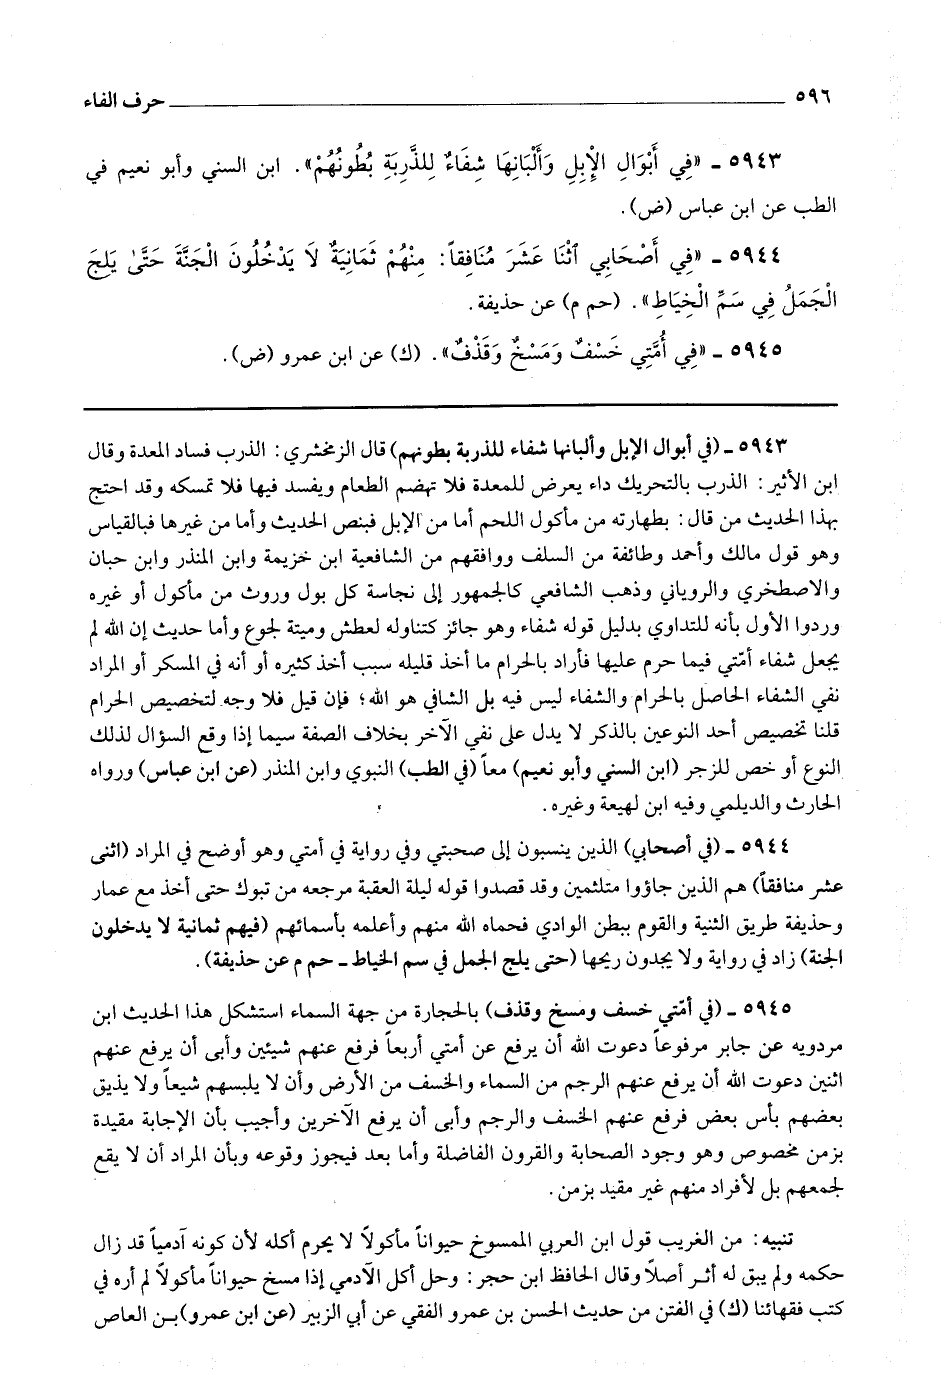 ٥٩٦ حرف الفاء
٥٩٤٣ ـ «فِي أَبْوَالِ الْإِبِلِ وَأَلْبَانِهَا شِفَاءٌ لِلذَّرِبَةِ بُطُونُهُمْ». ابن السني وأبو نعيم في
الطب عن ابن عباس (ض).
٥٩٤٤ ـ «فِي أَصْحَابِي اثْنَا عَشَرَ مُنَافِقاً: مِنْهُمْ ثَمَانِيَةٌ لَا يَدْخُلُونَ الْجَنَّةَ حَتَّى يَلِجَ
الْجَمَلُ فِي سَمِّ الْخِيَاطِ». (حم م) عن حذيفة.
٥٩٤٥ ـ «فِي أُمَّتِي خَسْفٌ وَمَسْخٌ وَقَذْفٌ». (ك) عن ابن عمرو (ض).
٥٩٤٣ ـ (في أبوال الإبل وألبانها شفاء للذربة بطونهم) قال الزمخشري: الذرب فساد المعدة وقال
ابن الأثير: الذرب بالتحريك داء يعرض للمعدة فلا تهضم الطعام ويفسد فيها فلا تمسكه وقد احتج
بهذا الحديث من قال: بطهارته من مأكول اللحم أما من الإبل فبنص الحديث وأما من غيرها فبالقياس
وهو قول مالك وأحمد وطائفة من السلف ووافقهم من الشافعية ابن خزيمة وابن المنذر وابن حبان
والاصطخري والروياني وذهب الشافعي كالجمهور إلى نجاسة كل بول وروث من مأكول أو غيره
وردوا الأول بأنه للتداوي بدليل قوله شفاء وهو جائز كتناوله لعطش وميتة لجوع وأما حديث إن الله لم
يجعل شفاء أمّتي فيما حرم عليها فأراد بالحرام ما أخذ قليله سبب أخذ كثيره أو أنه في المسكر أو المراد
نفي الشفاء الحاصل بالحرام والشفاء ليس فيه بل الشافي هو الله؛ فإن قيل فلا وجه لتخصيص الحرام
قلنا تخصيص أحد النوعين بالذكر لا يدل على نفي الآخر بخلاف الصفة سيما إذا وقع السؤال لذلك
النوع أو خص للزجر (ابن السني وأبو نعيم) معاً (في الطب) النبوي وابن المنذر (عن ابن عباس) ورواه
الحارث والديلمي وفيه ابن لهيعة وغيره.
٥٩٤٤ ـ (في أصحابي) الذين ينسبون إلى صحبتي وفي رواية في أمتي وهو أوضح في المراد (اثنى
عشر منافقاً) هم الذين جاؤوا متلثمين وقد قصدوا قوله ليلة العقبة مرجعه من تبوك حتى أخذ مع عمار
وحذيفة طريق الثنية والقوم ببطن الوادي فحماه الله منهم وأعلمه بأسمائهم (فيهم ثمانية لا يدخلون
الجنة) زاد في رواية ولا يجدون ريحها (حتى يلج الجمل في سم الخياط ـ حم م عن حذيفة).
٥٩٤٥ ـ (في أمّتي خسف ومسخ وقذف) بالحجارة من جهة السماء استشكل هذا الحديث ابن
مردويه عن جابر مرفوعاً دعوت الله أن يرفع عن أمتي أربعاً فرفع عنهم شيئين وأبى أن يرفع عنهم
اثنين دعوت الله أن يرفع عنهم الرجم من السماء والخسف من الأرض وأن لا يلبسهم شيعاً ولا يذيق
بعضهم بأس بعض فرفع عنهم الخسف والرجم وأبى أن يرفع الآخرين وأجيب بأن الإجابة مقيدة
بزمن مخصوص وهو وجود الصحابة والقرون الفاضلة وأما بعد فيجوز وقوعه وبأن المراد أن لا يقع
لجمعهم بل لأفراد منهم غير مقيد بزمن.
تنبيه: من الغريب قول ابن العربي الممسوخ حيواناً مأكولاً لا يحرم أكله لأن كونه آدمياً قد زال
حكمه ولم يبق له أثر أصلاً وقال الحافظ ابن حجر: وحل أكل الآدمي إذا مسخ حيواناً مأكولاً لم أره في
كتب فقهائنا (ك) في الفتن من حديث الحسن بن عمرو الفقي عن أبي الزبير (عن ابن عمرو) بـن العاص